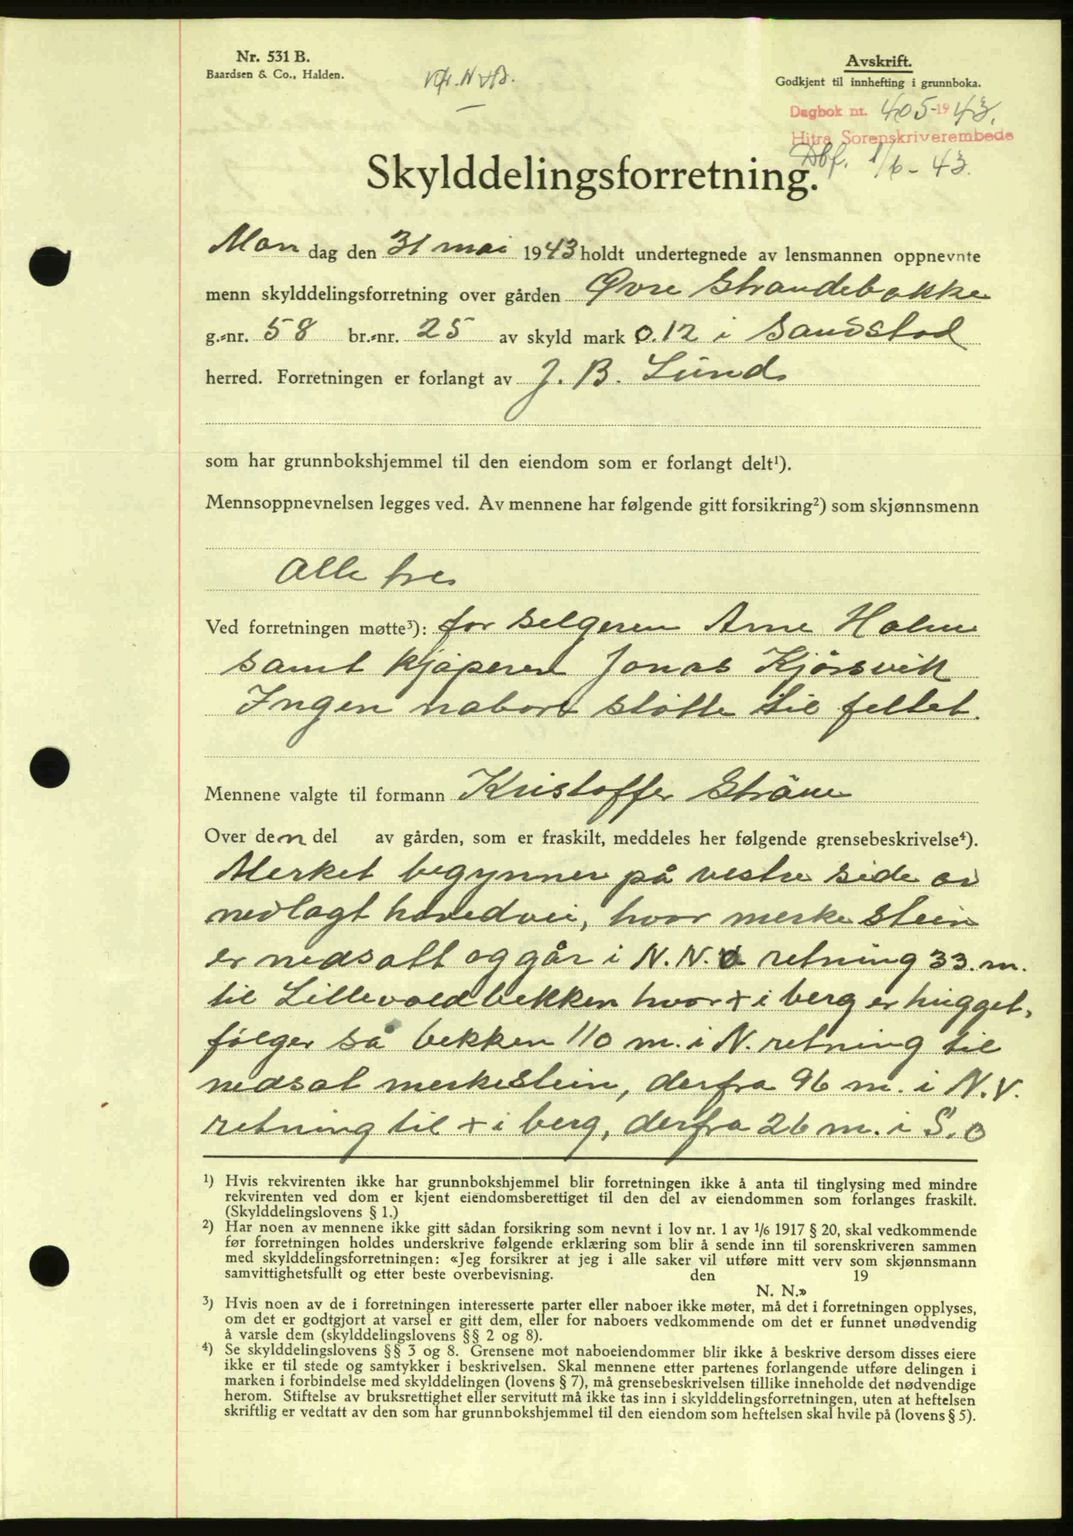 Nr. 531 B.
Baardsen & Co., Halden.
Avskrift.
Godkjent til innhefting i grunnboka.
Dagbok nr. 405-1943.
Hitra Sorenskriverembede
Dbf. 1/6-43.
Skylddelingsforretning.
Mandag den 31 mai 1943 holdt undertegnede av lensmannen oppnevnte
menn skylddelingsforretning over gården Øvre Strandebakke
g.-nr. 58 br.-nr. 25 av skyld mark 0.12 i Sandstad
herred. Forretningen er forlangt av J. B. Lund
som har grunnbokshjemmel til den eiendom som er forlangt delt¹).
Mennsoppnevnelsen legges ved. Av mennene har følgende gitt forsikring²) som skjønnsmenn
Alle tre
Ved forretningen møtte³): for selgeren Arne Holm
samt kjøperen Jonas Kjørsvik
Ingen naboer støtte til feltet.
Mennene valgte til formann Kristoffer Strøm
Over den del av gården, som er fraskilt, meddeles her følgende grensebeskrivelse⁴).
Merket begynner på vestre side av
nedlagt hovedvei, hvor merkestein
er nedsatt og går i N.N. retning 33. m.
til Lillevoldbekken hvor x i berg er hugget,
følger så bekken 110 m. i N. retning til
nedsat merkestein, derfra 96 m. i N.V.
retning til x i berg, derfra 26 m. i S.O
¹) Hvis rekvirenten ikke har grunnbokshjemmel blir forretningen ikke å anta til tinglysing med mindre
rekvirenten ved dom er kjent eiendomsberettiget til den del av eiendommen som forlanges fraskilt.
(Skylddelingslovens § 1.)
²) Har noen av mennene ikke gitt sådan forsikring som nevnt i lov nr. 1 av 1/6 1917 § 20, skal vedkommende
før forretningen holdes underskrive følgende erklæring som blir å sende inn til sorenskriveren sammen
med skylddelingsforretningen: «Jeg forsikrer at jeg i alle saker vil utføre mitt verv som skjønnsmann
samvittighetsfullt og etter beste overbevisning. den 19
N. N.»
³) Hvis noen av de i forretningen interesserte parter eller naboer ikke møter, må det i forretningen opplyses,
om det er godtgjort at varsel er gitt dem, eller for naboers vedkommende om det er funnet unødvendig
å varsle dem (skylddelingslovens §§ 2 og 8).
⁴) Se skylddelingslovens §§ 3 og 8. Grensene mot naboeiendommer blir ikke å beskrive dersom disses eiere
ikke er til stede og samtykker i beskrivelsen. Skal mennene etter partenes forlangende utføre delingen i
marken i forbindelse med skylddelingen (lovens § 7), må grensebeskrivelsen tillike inneholde det nødvendige
herom. Stiftelse av bruksrettighet eller servitutt må ikke tas inn i skylddelingsforretningen, uten at heftelsen
skriftlig er vedtatt av den som har grunnbokshjemmel til den eiendom som heftelsen skal hvile på (lovens § 5).